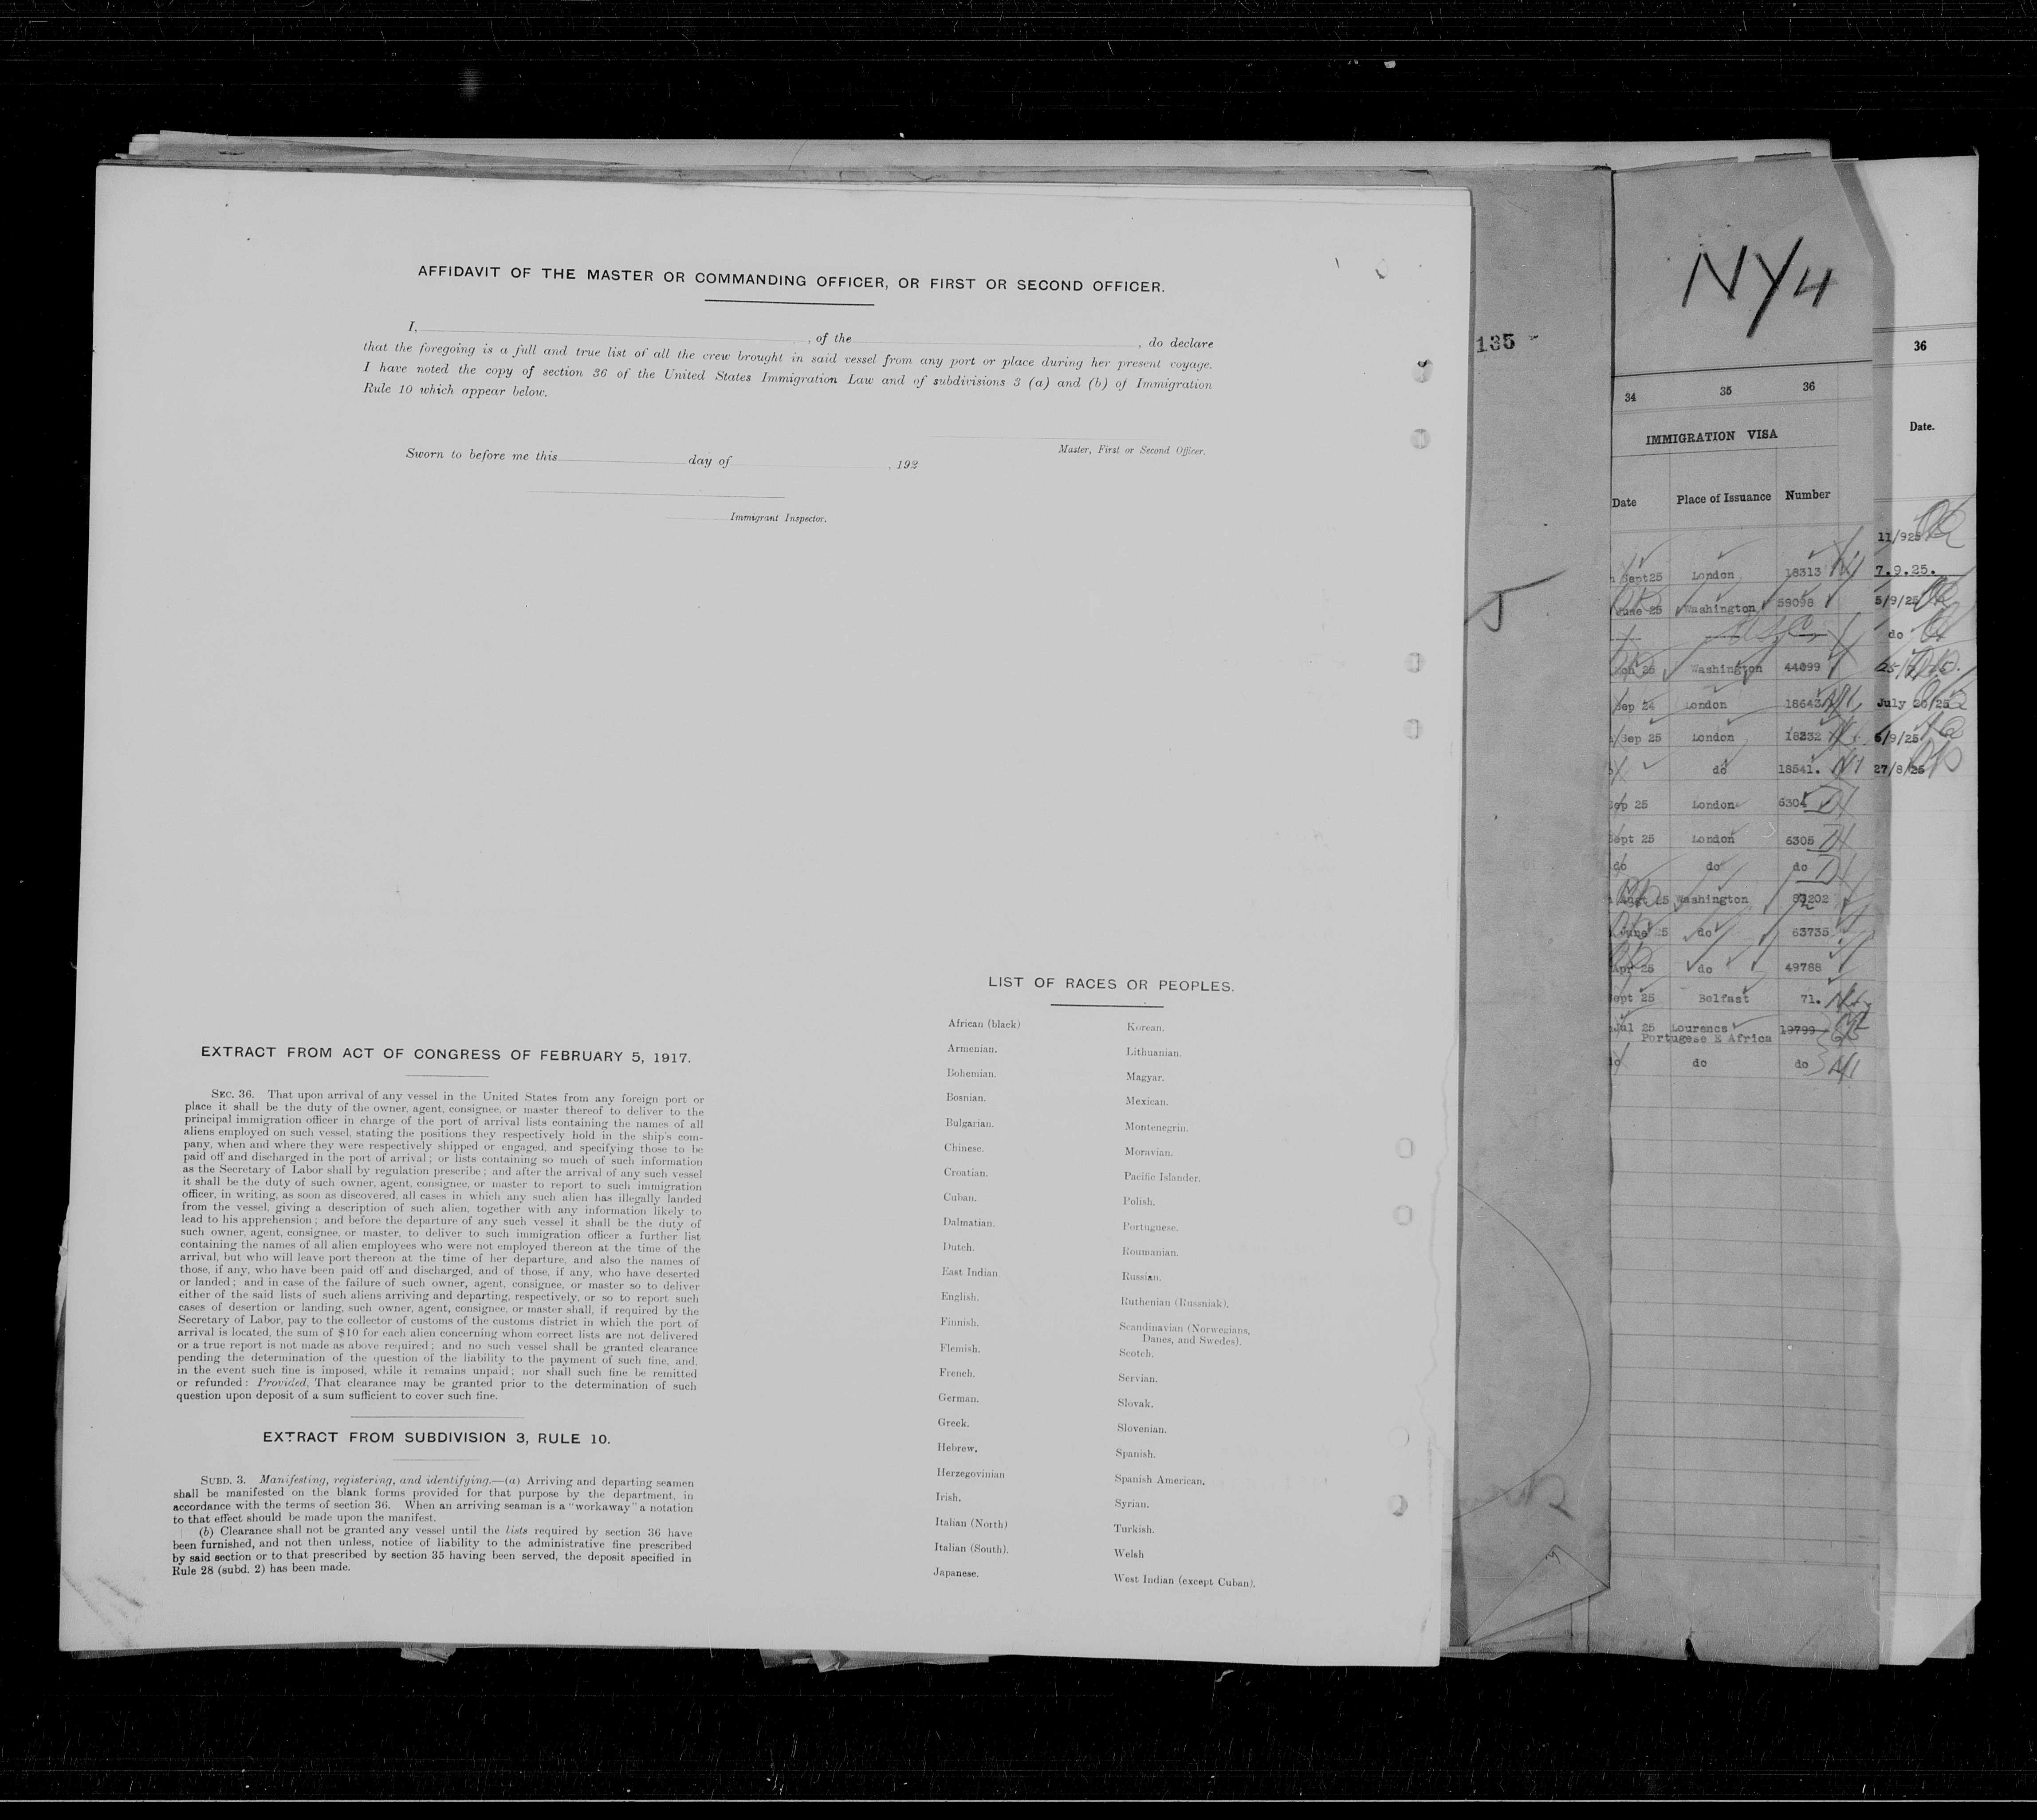 AFFIDAVIT OF THE MASTER OR COMMANDING OFFICER, OR FIRST OR SECOND OFFICER.
I, , of the , do declare
that the foregoing is a full and true list of all the crew brought in said vessel from any port or place during her present voyage.
I have noted the copy of section 36 of the United States Immigration Law and of subdivisions 3 (a) and (b) of Immigration
Rule 10 which appear below.
Master, First or Second Officer.
Sworn to before me this day of , 192
Immigrant Inspector.
EXTRACT FROM ACT OF CONGRESS OF FEBRUARY 5, 1917.
SEC. 36. That upon arrival of any vessel in the United States from any foreign port or
place it shall be the duty of the owner, agent, consignee, or master thereof to deliver to the
principal immigration officer in charge of the port of arrival lists containing the names of all
aliens employed on such vessel, stating the positions they respectively hold in the ship's com-
pany, when and where they were respectively shipped or engaged, and specifying those to be
paid off and discharged in the port of arrival; or lists containing so much of such information
as the Secretary of Labor shall by regulation prescribe; and after the arrival of any such vessel
it shall be the duty of such owner, agent, consignee, or master to report to such immigration
officer, in writing, as soon as discovered, all cases in which any such alien has illegally landed
from the vessel, giving a description of such alien, together with any information likely to
lead to his apprehension; and before the departure of any such vessel it shall be the duty of
such owner, agent, consignee, or master, to deliver to such immigration officer a further list
containing the names of all alien employees who were not employed thereon at the time of the
arrival, but who will leave port thereon at the time of her departure, and also the names of
those, if any, who have been paid off and discharged, and of those, if any, who have deserted
or landed; and in case of the failure of such owner, agent, consignee, or master so to deliver
either of the said lists of such aliens arriving and departing, respectively, or so to report such
cases of desertion or landing, such owner, agent, consignee, or master shall, if required by the
Secretary of Labor, pay to the collector of customs of the customs district in which the port of
arrival is located, the sum of $10 for each alien concerning whom correct lists are not delivered
or a true report is not made as above required; and no such vessel shall be granted clearance
pending the determination of the question of the liability to the payment of such fine, and,
in the event such fine is imposed, while it remains unpaid; nor shall such fine be remitted
or refunded: Provided, That clearance may be granted prior to the determination of such
question upon deposit of a sum sufficient to cover such fine.
EXTRACT FROM SUBDIVISION 3, RULE 10.
SUBD. 3. Manifesting, registering, and identifying.—(a) Arriving and departing seamen
shall be manifested on the blank forms provided for that purpose by the department, in
accordance with the terms of section 36. When an arriving seaman is a "workaway" a notation
to that effect should be made upon the manifest.
(b) Clearance shall not be granted any vessel until the lists required by section 36 have
been furnished, and not then unless, notice of liability to the administrative fine prescribed
by said section or to that prescribed by section 35 having been served, the deposit specified in
Rule 28 (subd. 2) has been made.
LIST OF RACES OR PEOPLES.
African (black)
Armenian.
Bohemian.
Bosnian.
Bulgarian.
Chinese.
Croatian.
Cuban.
Dalmatian.
Dutch.
East Indian
English.
Finnish.
Flemish.
French.
German.
Greek.
Hebrew.
Herzegovinian
Irish.
Italian (North)
Italian (South).
Japanese.
Korean.
Lithuanian.
Magyar.
Mexican.
Montenegrin.
Moravian.
Pacific Islander.
Polish.
Portuguese.
Roumanian.
Russian.
Ruthenian (Russniak).
Scandinavian (Norwegians,
Danes, and Swedes).
Scotch.
Servian.
Slovak.
Slovenian.
Spanish.
Spanish American.
Syrian.
Turkish.
Welsh
West Indian (except Cuban).
135
NY4
34 35 36
IMMIGRATION VISA
Date Place of Issuance Number
Sept 25 London 18313
June 25 Washington 59098
25 Washington 44099
Sep 24 London 18643
Sep 25 London 18232
do 18541.
Sep 25 London 6304 D
Sept 25 London 6305 D
do do do D
Augt 25 Washington 202
June 25 do 63735
Apr 25 do 49788
Sept 25 Belfast 71.
Jul 25 Lourencs 19799
Portugese E Africa
do do
36
Date.
11/925
7.9.25.
5/9/25
do
July 20/25
6/9/25
27/8/25